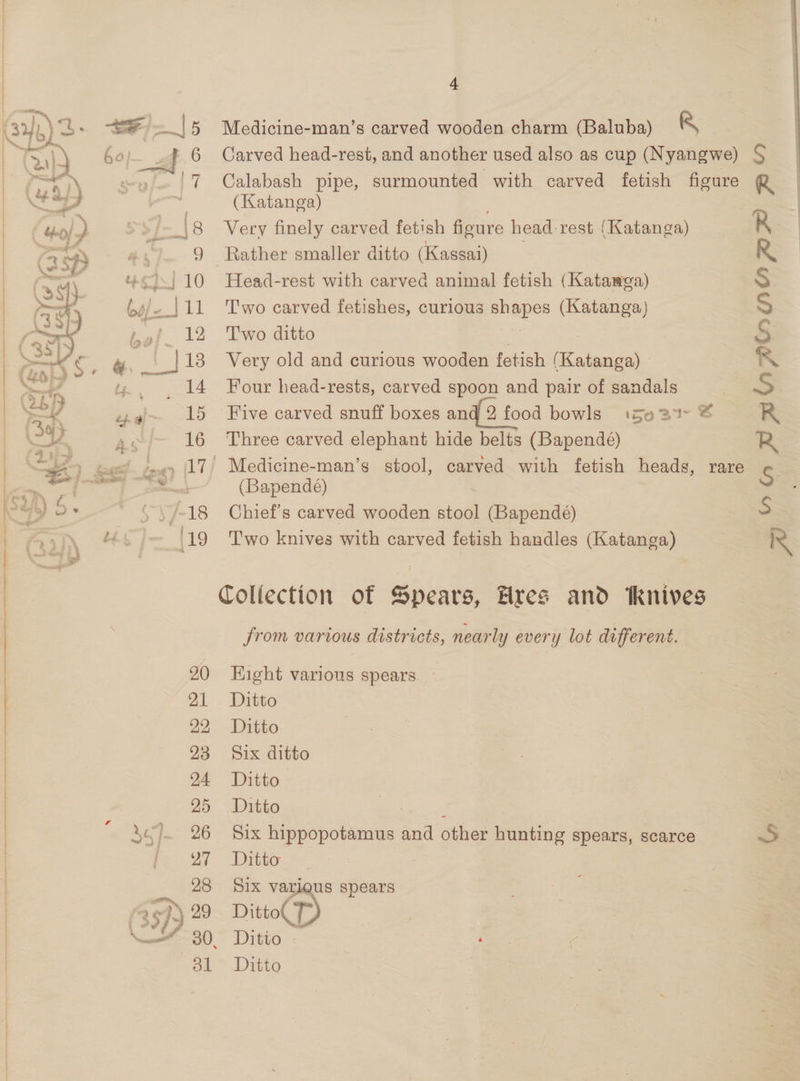 4
5 Medicine-man's carved wooden charm (Baluba) R
60/- 6 Carved head-rest, and another used also as cup (Nyangwe) S
7 Calabash pipe, surmounted with carved fetish figure R
(Katanga)
(40/) 8 Very finely carved fetish figure head-rest (Katanga) R
(35/) 9 Rather smaller ditto (Kassai) R
10 Head-rest with carved animal fetish (Katanga) S
(35/) 60/- 11 Two carved fetishes, curious shapes (Katanga) S
(35/) 12 Two ditto S
13 Very old and curious wooden fetish (Katanga) R
14 Four head-rests, carved spoon and pair of sandals S
15 Five carved snuff boxes and 2 food bowls R
16 Three carved elephant hide belts (Bapendé) R
17 Medicine-man's stool, carved with fetish heads, rare S
(Bapendé)
18 Chief's carved wooden stool (Bapendé) S
19 Two knives with carved fetish handles (Katanga) R
Collection of Spears, Axes and Knives
from various districts, nearly every lot different.
20 Eight various spears
21 Ditto
22 Ditto
23 Six ditto
24 Ditto
25 Ditto
26 Six hippopotamus and other hunting spears, scarce S
27 Ditto
28 Six various spears
(35/) 29 Ditto (T)
30 Ditto
31 Ditto